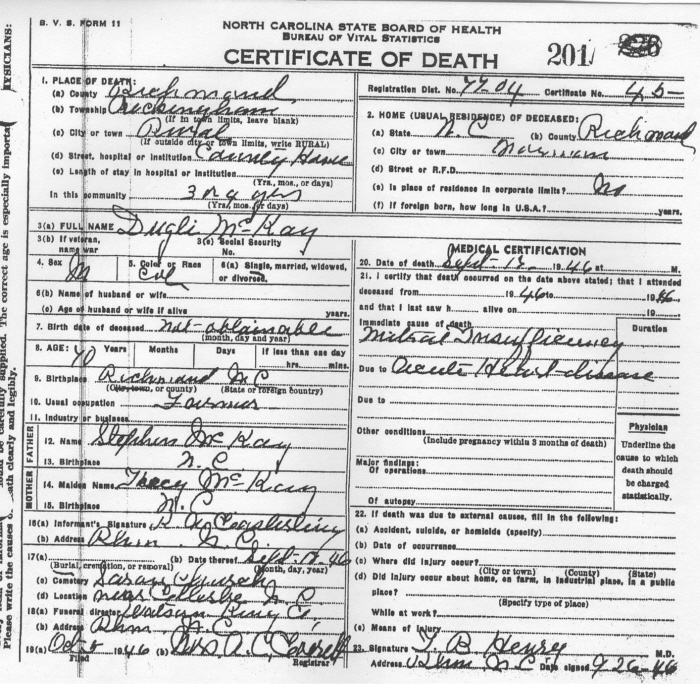 B. V. S. FORM 11
NORTH CAROLINA STATE BOARD OF HEALTH
BUREAU OF VITAL STATISTICS
CERTIFICATE OF DEATH
201
1. PLACE OF DEATH:
(a) County Richmond
(b) Township Rockingham
(If in town limits, leave blank)
(c) City or town Rural
(If outside city or town limits, write RURAL)
(d) Street, hospital or institution County Home
(e) Length of stay in hospital or institution
(Yrs., mos., or days)
In this community 3 or 4 yrs
(Yrs., mos., or days)
Registration Dist. No. 77-04 Certificate No. 45
2. HOME (USUAL RESIDENCE) OF DECEASED:
(a) State N. C (b) County Richmond
(c) City or town Norman
(d) Street or R.F.D.
(e) Is place of residence in corporate limits? No
(f) If foreign born, how long in U.S.A.? years.
3(a) FULL NAME Dugli McKay
3(b) If veteran, name war
3(c) Social Security No.
4. Sex M
5. Color or Race Col
6(a) Single, married, widowed, or divorced.
6(b) Name of husband or wife
(c) Age of husband or wife if alive years.
7. Birth date of deceased not-obtainable
(month, day and year)
8. AGE: 70 Years Months Days If less than one day
hrs. mins.
9. Birthplace Richmond N C
(City, town, or county) (State or foreign country)
10. Usual occupation Farmer
11. Industry or business
FATHER
12. Name Stephen McKay
13. Birthplace N. C
MOTHER
14. Maiden Name Tracy McKay
15. Birthplace N. C
16(a) Informant's Signature
(b) Address Rhm N. C.
17(a) (b) Date thereof Sept-17-46
(Burial, cremation, or removal) (Month, day, year)
(c) Cemetery Church
(d) Location near N C
18(a) Funeral director Watson King Co,
(b) Address Rhm N. C
19(a) Oct 5 1946 (b) Mrs A. C. Everett
Filed Registrar
MEDICAL CERTIFICATION
20. Date of death Sept-15- 1946 at M.
21. I certify that death occurred on the date above stated; that I attended
deceased from 1946 to 1946
and that I last saw h alive on 19
Immediate cause of death
Mitral Insufficiency
Due to Acute Heart disease
Due to
Duration
Other conditions
(Include pregnancy within 3 months of death)
Major findings:
Of operations
Of autopsy
Physician
Underline the cause to which death should be charged statistically.
22. If death was due to external causes, fill in the following:
(a) Accident, suicide, or homicide (specify)
(b) Date of occurrence
(c) Where did injury occur?
(City or town) (County) (State)
(d) Did injury occur about home, on farm, in industrial place, in a public
place?
(Specify type of place)
While at work?
(e) Means of injury
23. Signature T. B Henry M.D.
Address Rhm N C Date signed 9-26-46
YSICIANS:
pplied. The correct age is especially importa
ath clearly and legibly.
Please write the causes o